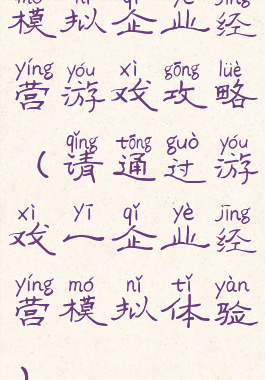 mó nǐ qǐ yè jīng
模拟企业经
yíng yóu xì gōng lüè
营游戏攻略
qǐng tōng guò yóu
（请通过游
xì yī qǐ yè jīng
戏一企业经
yíng mó nǐ tǐ yàn
营模拟体验
）